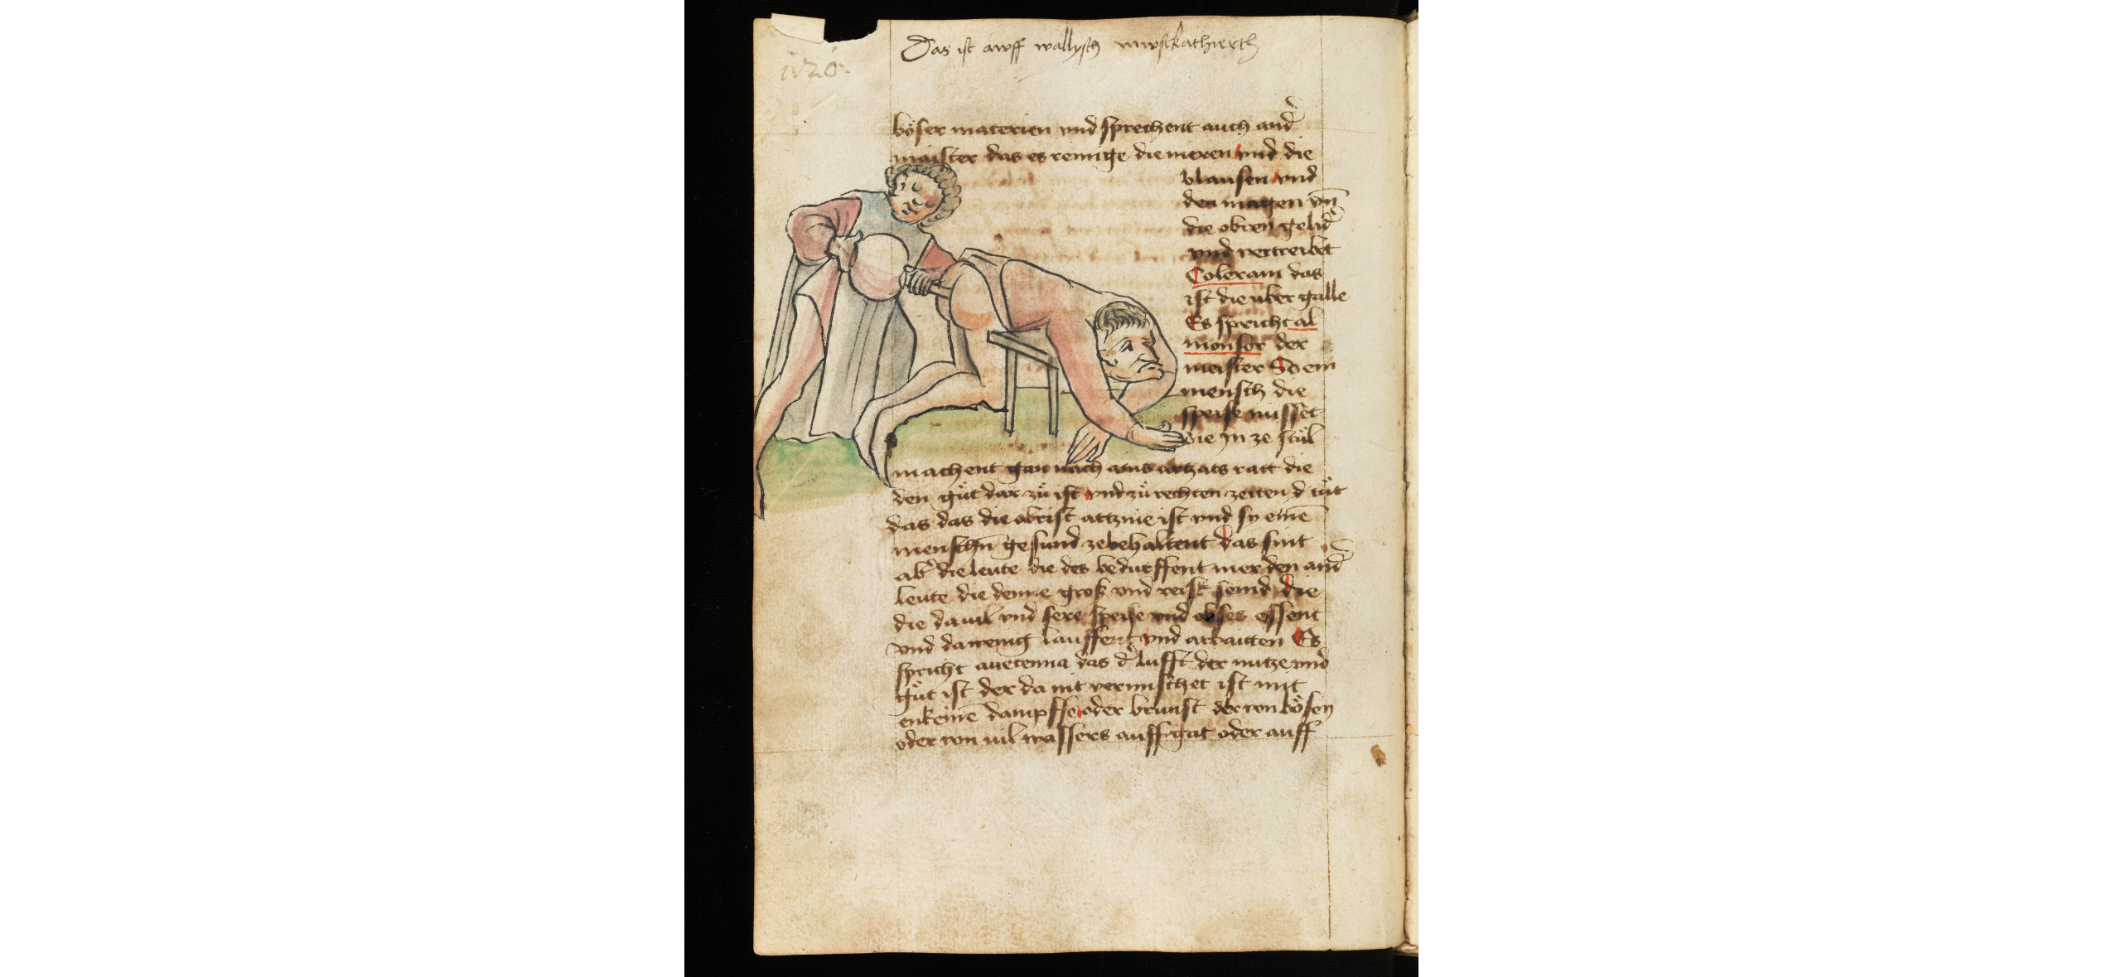 Das ist awff wallysch
1520.
böser materien vnd sprechent auch and̄
maister das es reinige die nieren vnd die
blausen vnd
den magen vn̄
die obren gelid̄
vnd vertreibet
Coleram das
ist die über galle
Es spricht al
monsor der
meister So ein
mensch die
speise nüsset
die jn ze stůl
machent gan nach ains artzats ratt die
den gůt dar zů ist vnd zů rechten zeiten d tůt
das das die obrist artznie ist vnd sy eine̅
menschn̄ gesund ze behaltent das sint
ab' die leute die des bedurffent mer den and̄
leute die denne groß vnd veist seind die
die da uil vnd sere speise vnd obses essent
vnd da wenig lauffent vnd arbaiten Es
spricht auecenna das d' lufft der nutze vnd
gůt ist der da nit vermischet ist mit
enkeine̅ dampffe oder brunst der von bösen
oder von uil wassers auff gat oder auff